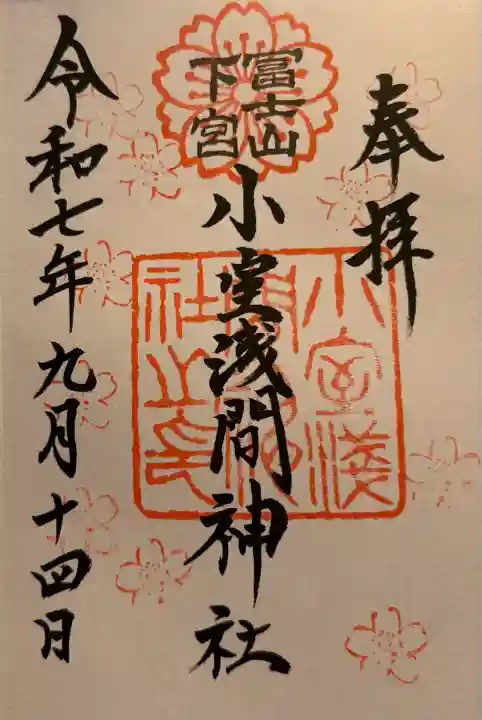 奉拝
冨士山
下宮
小室浅間神社
小室浅
間神
社之印
令和七年九月十四日